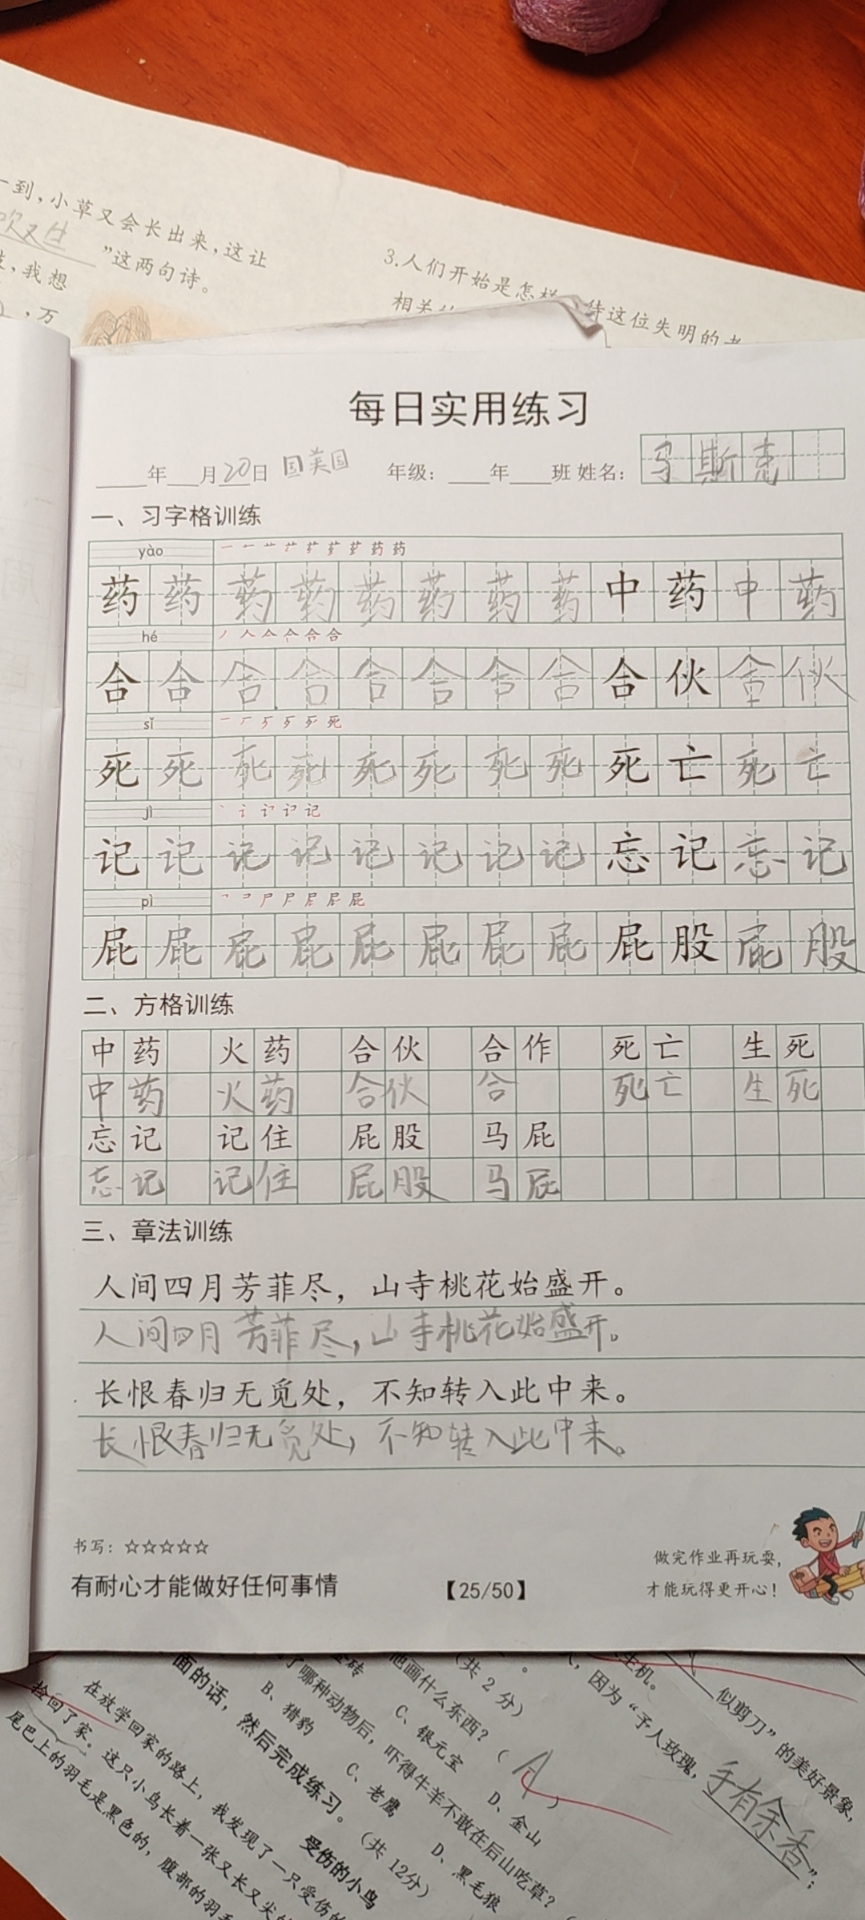 一到，小草又会长出来，这让
吹又生”这两句诗。
，我想
，万
3.人们开始是怎样
待这位失明的老
相关
每日实用练习
年 月20日 国美国 年级： 年 班 姓名：马斯克
一、习字格训练
yào
药药药药药药药药中药中药
hé
合合合合合合合合合伙合伙
sǐ
死死死死死死死死死亡死亡
jì
记记记记记记记记忘记忘记
pì
屁屁屁屁屁屁屁屁屁股屁股
二、方格训练
中药 火药 合伙 合作 死亡 生死
中药 火药 合伙 合 死亡 生死
忘记 记住 屁股 马屁
忘记 记住 屁股 马屁
三、章法训练
人间四月芳菲尽，山寺桃花始盛开。
人间四月芳菲尽，山寺桃花始盛开。
长恨春归无觅处，不知转入此中来。
长恨春归无觅处，不知转入此中来。
书写：☆☆☆☆☆
有耐心才能做好任何事情
【25/50】
做完作业再玩耍，
才能玩得更开心！
主机。
似剪刀”的美好景象，
，因为“予人玫瑰，手有余香”；
（共 2 分）
他画什么东西？（ A ）
金砖 C、银元宝 D、金山
了哪种动物后，吓得牛羊不敢在后山吃草？（
B、猎豹 C、老鹰 D、黑毛狼
面的话，然后完成练习。（共 12分）
受伤的小鸟
在放学回家的路上，我发现了一只受伤的
捡回了家。这只小鸟长着一张又长又尖的
尾巴上的羽毛是黑色的，腹部的羽毛